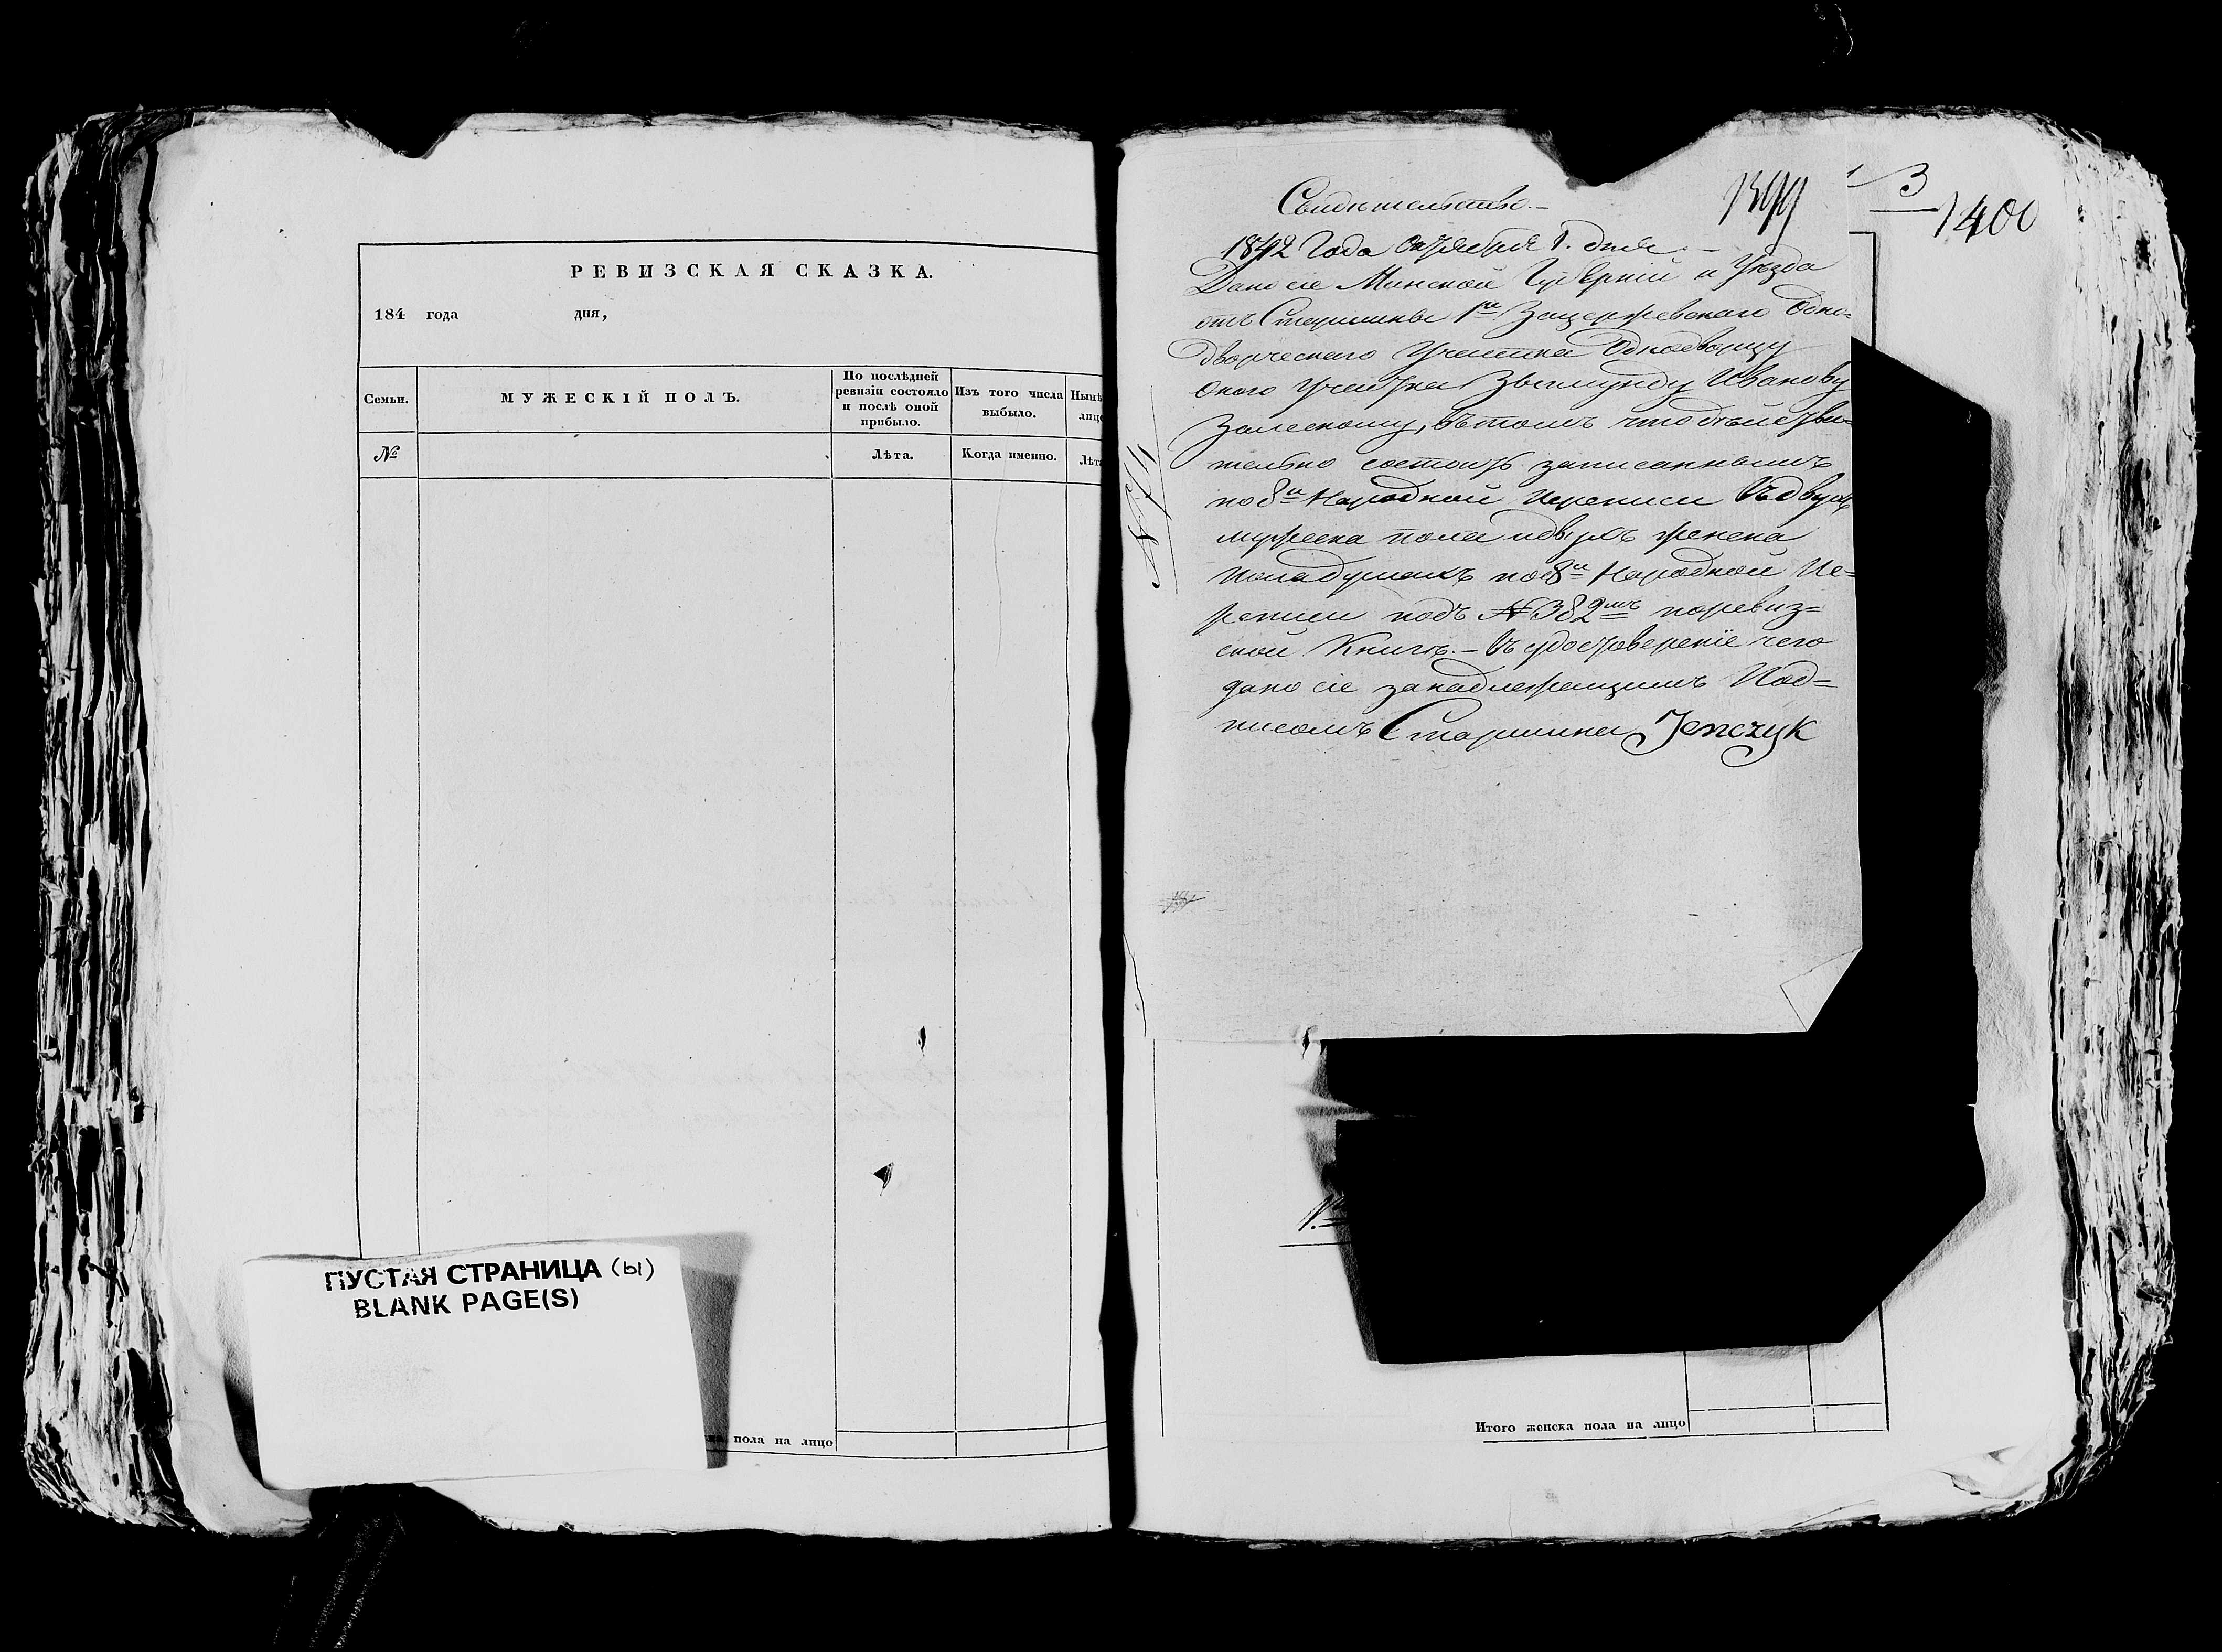 РЕВИЗСКАЯ СКАЗКА.
184 года дня,
Семьи.
МУЖЕСКІЙ ПОЛЪ.
По послѣдней
ревизіи состояло
и послѣ оной
прибыло.
Изъ того числа
выбыло.
Нынѣ
лицо
№
Лѣта.
Когда именно.
Лѣта
ПУСТАЯ СТРАНИЦА (ы)
BLANK PAGE(S)
пола на лицо
1399
3
1400
Свидѣтельство.-
1842 Года Октября 1. дня -
Дано сіе Минской Губерніи и Уѣзда
отъ Старшины 1го Одно=
дворческаго Участка Однодворцу
Оного Участка Зыгмунду Иванову
Залескому, въ томъ что действи=
тельно состоитъ записаннымъ
по 8й Народной Переписи Въ двухъ
мужеска пола и двухъ женска
пола душахъ по 8й Народной Пе=
реписи подъ № 382мъ поревиз=
ской Книгѣ. - въ удостовереніе чего
дано сіе занадлежащимъ Под=
писомъ Старшина Jenczyk
1.
Итого женска пола на лицо